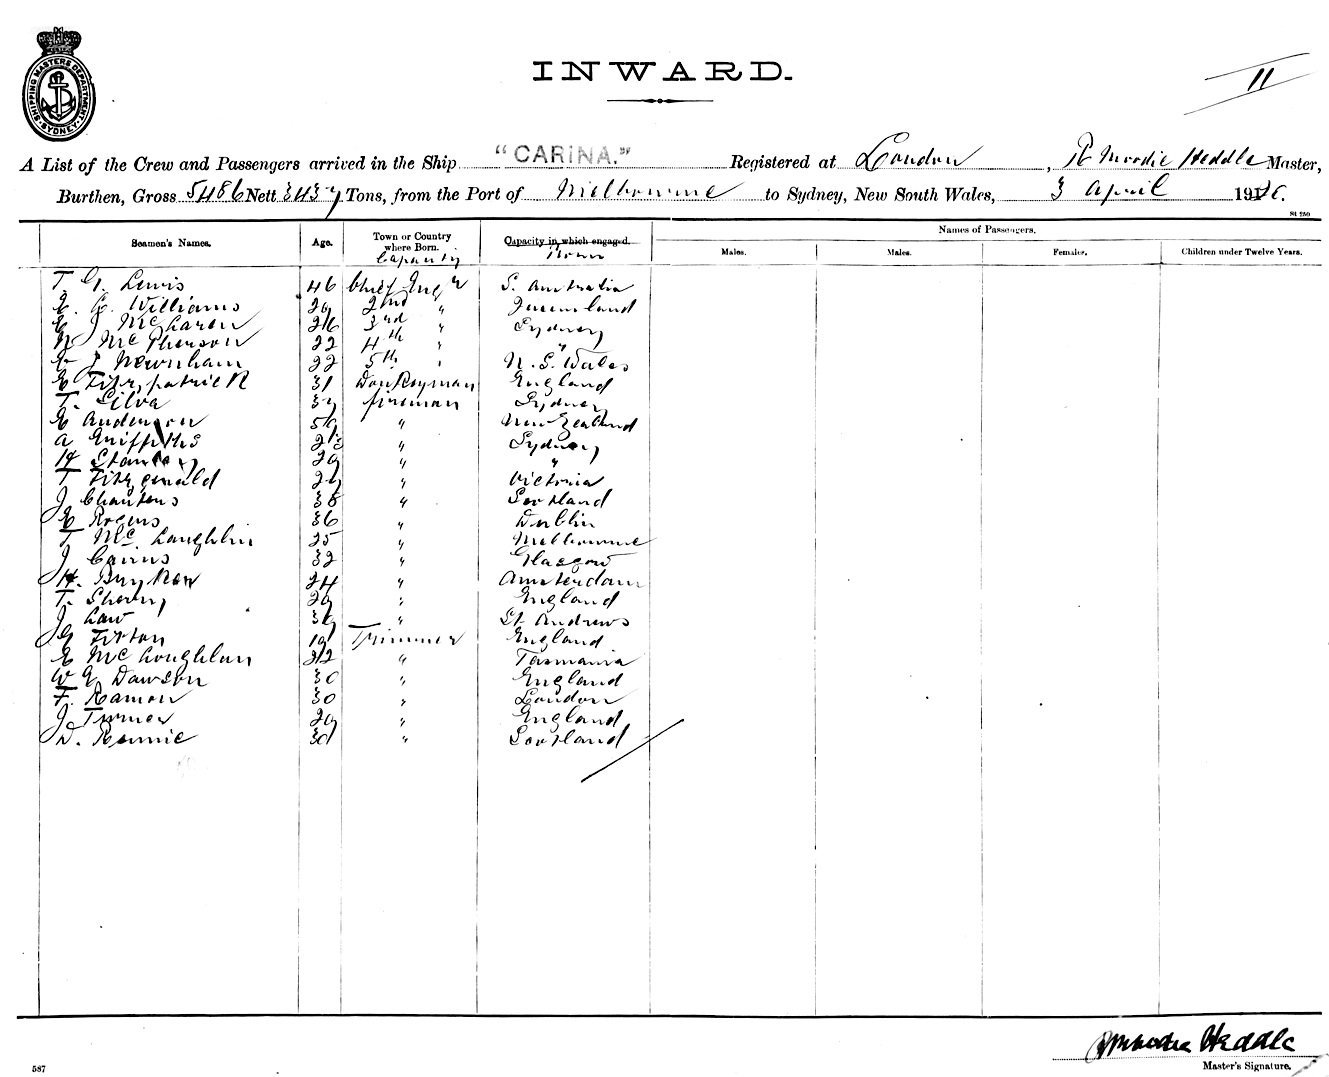 SHIPPING MASTERS DEPARTMENT SYDNEY
INWARD.
11
A List of the Crew and Passengers arrived in the Ship "CARINA." Registered at London, R Moodie Heddle Master,
Burthen, Gross 5486 Nett 3437 Tons, from the Port of Melbourne to Sydney, New South Wales, 3 April 19
St 250
Seamen's Names. Age. Town or Country where Born. Capacity in which engaged. Names of Passengers.
Capacity Born Males. Males. Females. Children under Twelve Years.
T. G. Lewis 46 Chief Engr S. Australia
E. C. Williams 29 2nd " Queensland
C J McLaren 26 3rd " Sydney
N McPherson 22 4th " "
J Newnham 22 5th " N. S. Wales
E Fitzpatrick 31 Donkeyman England
T. Silva 37 fireman Sydney
E Anderson 59 " New Zealand
A Griffiths " Sydney
H Stanley 29 " "
T Fitzgerald " Victoria
J 38 " Scotland
36 " Dublin
T McLaughlin 25 " Melbourne
J Cairns 32 " Glasgow
H. 24 " Amsterdam
T. 29 " England
J Law " St. Andrews
19 Trimmer England
E McLoughlan 22 " Tasmania
W G Dawson 30 " England
F. Ramon 30 " London
J Turner 29 " England
D. Rennie " Scotland
R Moodie Heddle
Master's Signature.
587